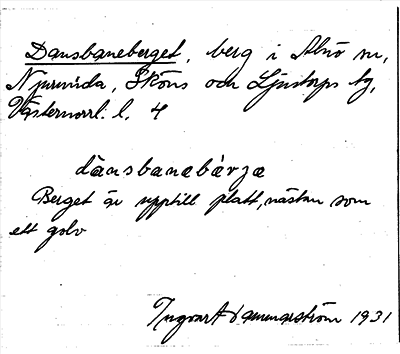 Dansbaneberget, berg i Alnö sn,
Njurunda, Sköns och Ljustorps tg,
Västernorrl. l. 4
dánsbanebàrjæ
Berget är upptill platt, nästan som
ett golv
Ingvart 1931